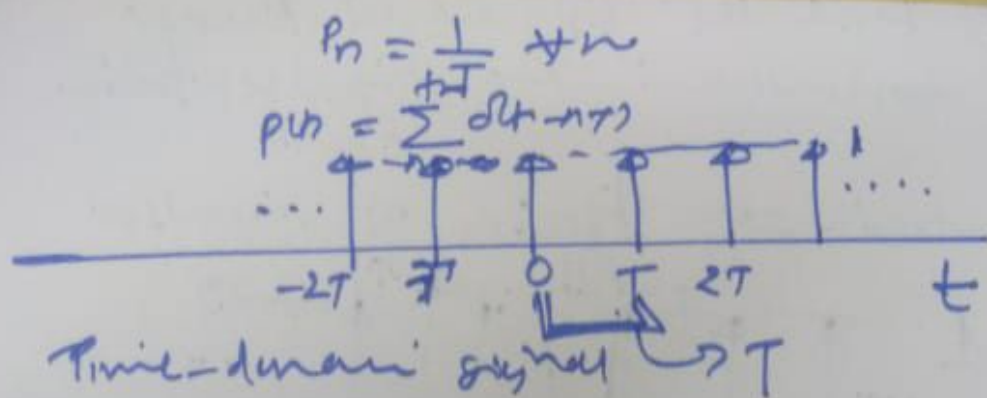 Pn = 1/T ∀ n
p(t) = +∞ ∑ n=-∞ δ(t-nT)
1
... ....
-2T -T 0 T 2T t
Time-domain signal → T